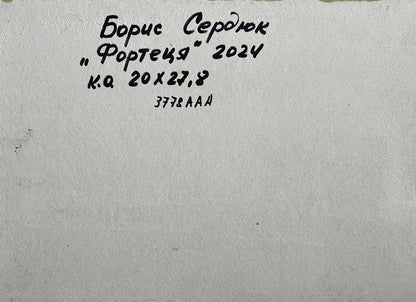 Борис Сердюк
„Фортеця" 2024
к.а 20х27,8
3778ААА